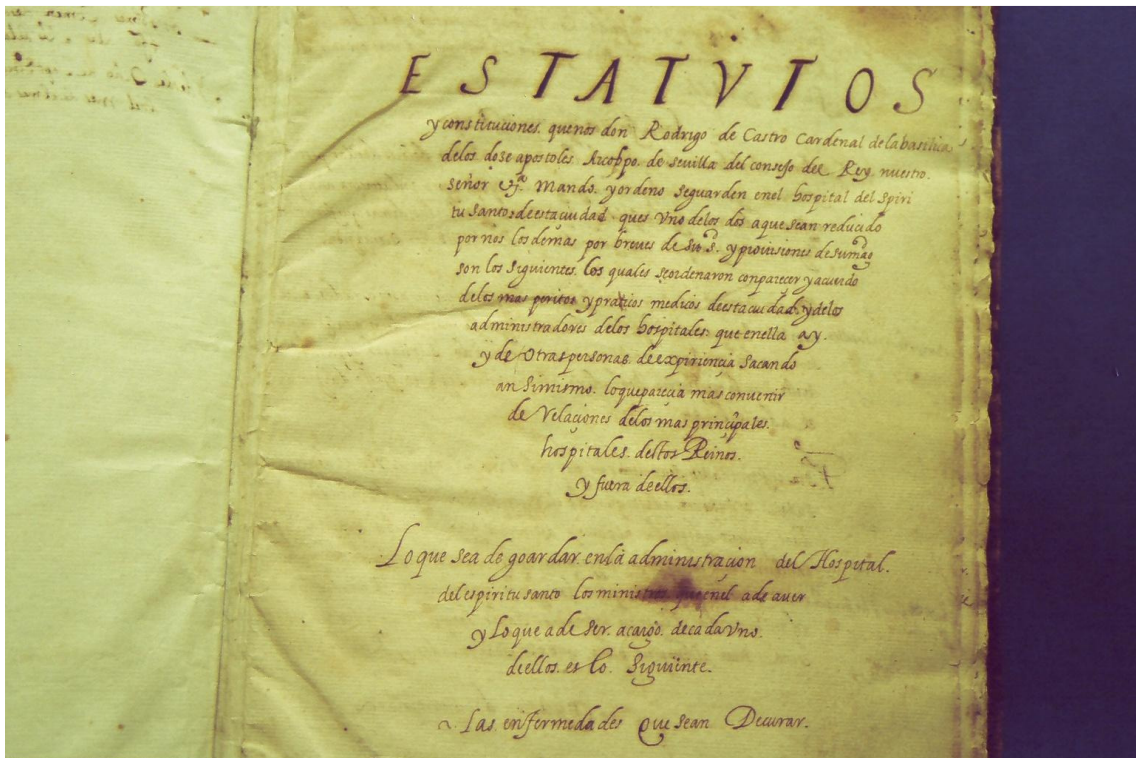 ESTATVTOS
y constituciones. que nos don Rodrigo de Castro Cardenal de la basilica
de los dose apostoles Arcobpo. de sevilla del consejo del Rey nuestro.
señor mando. y ordeno se guarden en el hospital del Spiri
tu Santo de esta ciudad ques Vno de los dos a que sean reducido
por nos los demas por breues de su s. y prouisiones de su mag
son los siguientes. los quales se ordenaron con parecer y acuerdo
de los mas peritos y praticos medicos de esta ciudad. y de los
administradores de los hospitales. que en ella ay.
y de Otras personas. de expiriencia Sacando
an Simismo. lo que parecia mas conuenir
de Relaciones de los mas principales.
hospitales. destos Reinos.
y fuera de ellos.
Lo que sea de goardar en la administracion del Hospital.
del espiritu santo los ministros que en el a de auer
y Lo que a de Ser. a cargo. de cada Vno.
de ellos. es lo Siguiinte.
Las enfermedades Que sean De curar.